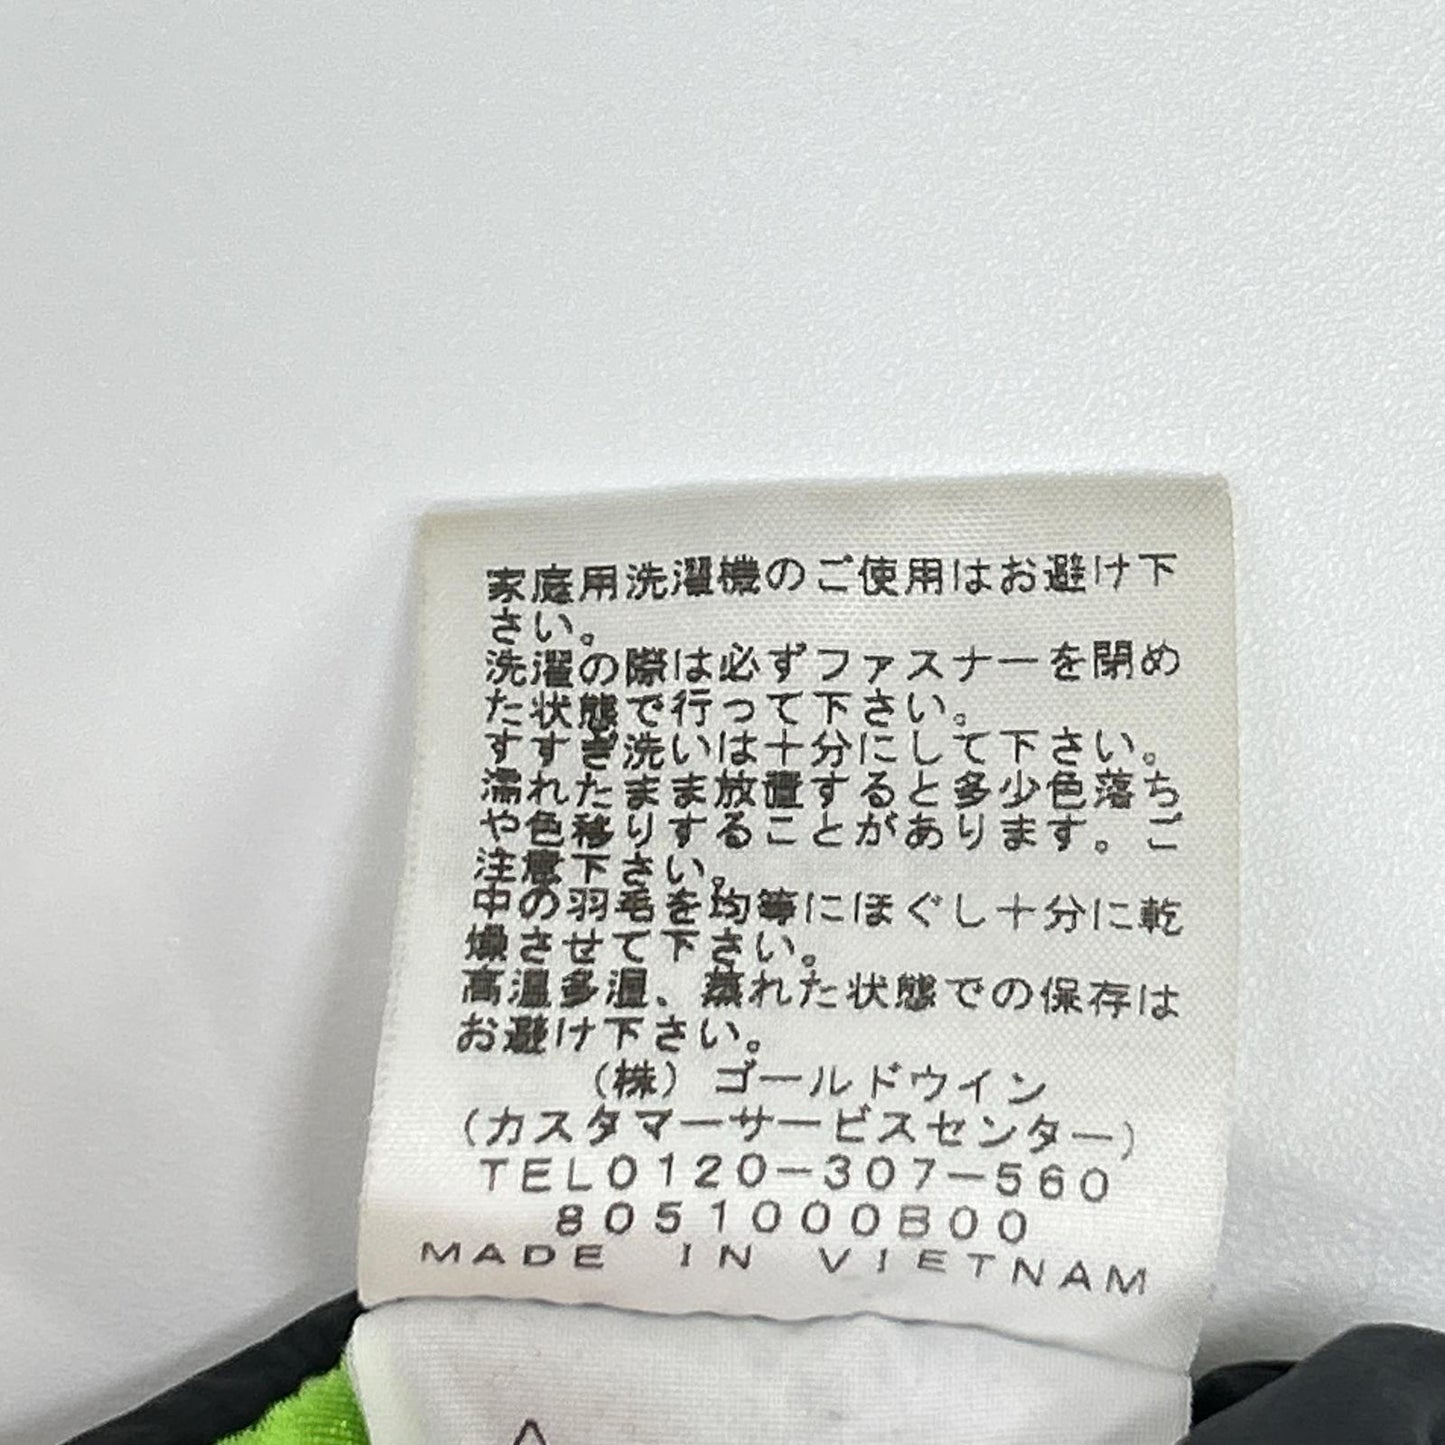 家庭用洗濯機のご使用はお避け下
さい。
洗濯の際は必ずファスナーを閉め
た状態で行って下さい。
すすぎ洗いは十分にして下さい。
濡れたまま放置すると多少色落ち
や色移りすることがあります。ご
注意下さい。
中の羽毛を均等にほぐし十分に乾
燥させて下さい。
高温多湿、蒸れた状態での保存は
お避け下さい。
(株)ゴールドウイン
(カスタマーサービスセンター)
TEL0120-307-560
8051000B00
MADE IN VIETNAM